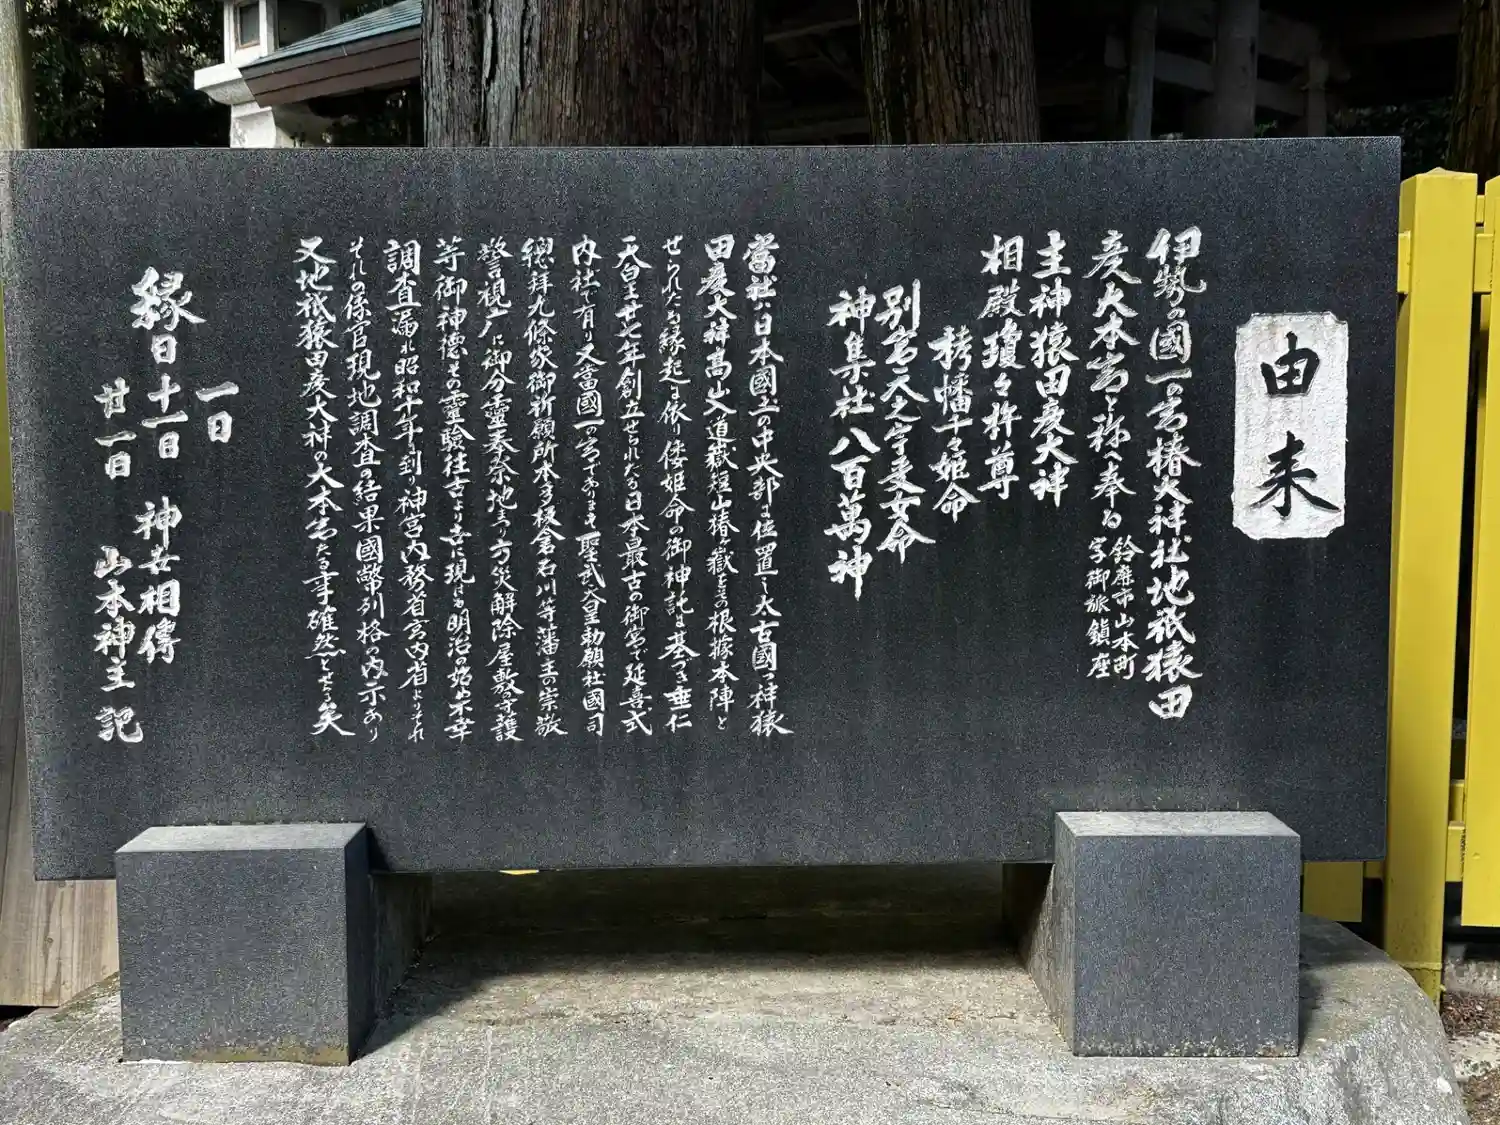 由来
伊勢の國一の宮椿大神社地祇猿田
彦大本宮と称へ奉る
鈴鹿市山本町
字御旅鎮座
主神猿田彦大神
相殿瓊々杵尊
栲幡千々姫命
別宮天之宇受女命
神集社八百萬神
當社ハ日本國土の中央部に位置し太古國つ神猿
田彦大神高山入道嶽短山椿ヶ嶽をその根據本陣と
せられたる縁起に依り倭姫命の御神託に基づき垂仁
天皇廿七年創立せられたる日本最古の御宮で延喜式
内社で有り又當國一の宮であります聖武天皇勅願社國司
總拜九條家御祈願所本多板倉石川等藩主の崇敬
警視庁に御分霊奉祭地まつり方災解除屋敷の守護
等御神徳その靈驗往古より世に現はる明治の始め不幸
調査漏れ昭和十年に到り神宮内務省宮内省よりそれ
それの係官現地調査の結果國幣列格の内示あり
又地祇猿田彦大神の大本宮たる事確然とせる矣
一日
縁日十一日
廿一日
神告相傳
山本神主記